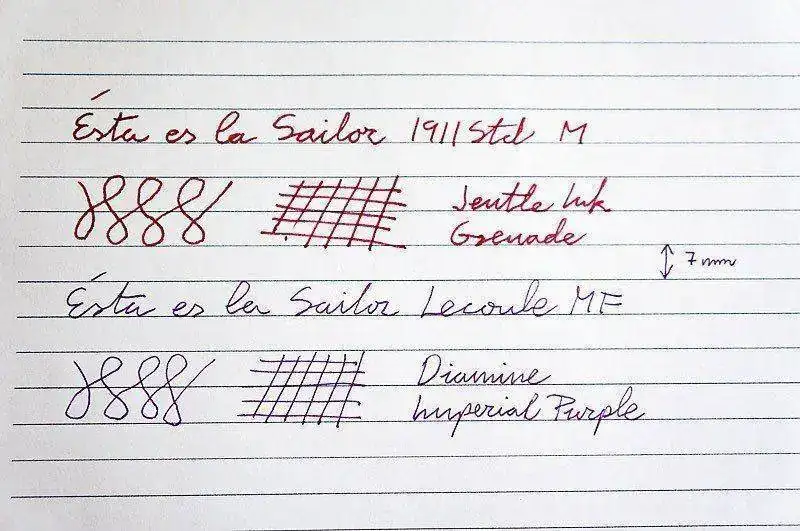 Ésta es la Sailor 1911 Std M
Jentle Ink
Grenade
7 mm
Ésta es la Sailor Lecoule MF
Diamine
Imperial Purple